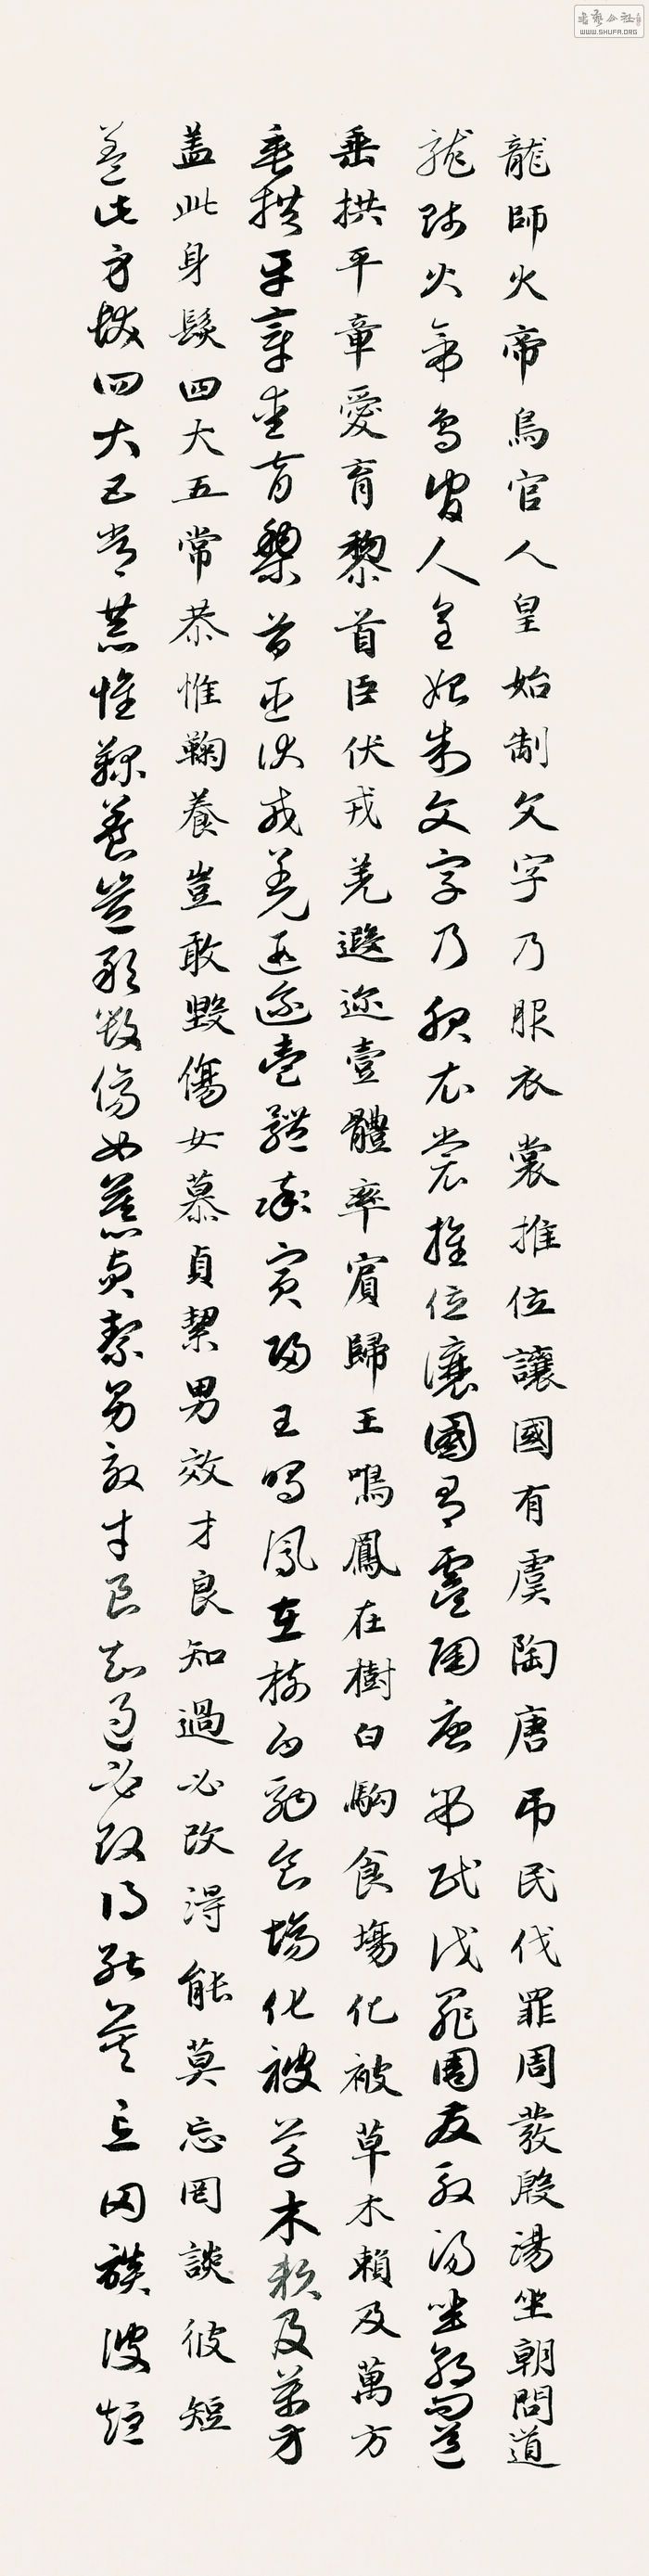 書藝公社
WWW.SHUFA.ORG
龍師火帝鳥官人皇始制文字乃服衣裳推位讓國有虞陶唐弔民伐罪周發殷湯坐朝問道
龍師火帝鳥官人皇始制文字乃服衣裳推位讓國有虞陶唐弔民伐罪周發殷湯坐朝問道
垂拱平章愛育黎首臣伏戎羌遐迩壹體率賓歸王鳴鳳在樹白駒食場化被草木賴及萬方
垂拱平章愛育黎首臣伏戎羌遐迩壹體率賓歸王鳴鳳在樹白駒食場化被草木賴及萬方
盖此身髮四大五常恭惟鞠養豈敢毀傷女慕貞絜男效才良知過必改得能莫忘罔談彼短
盖此身髮四大五常恭惟鞠養豈敢毀傷女慕貞絜男效才良知過必改得能莫忘罔談彼短